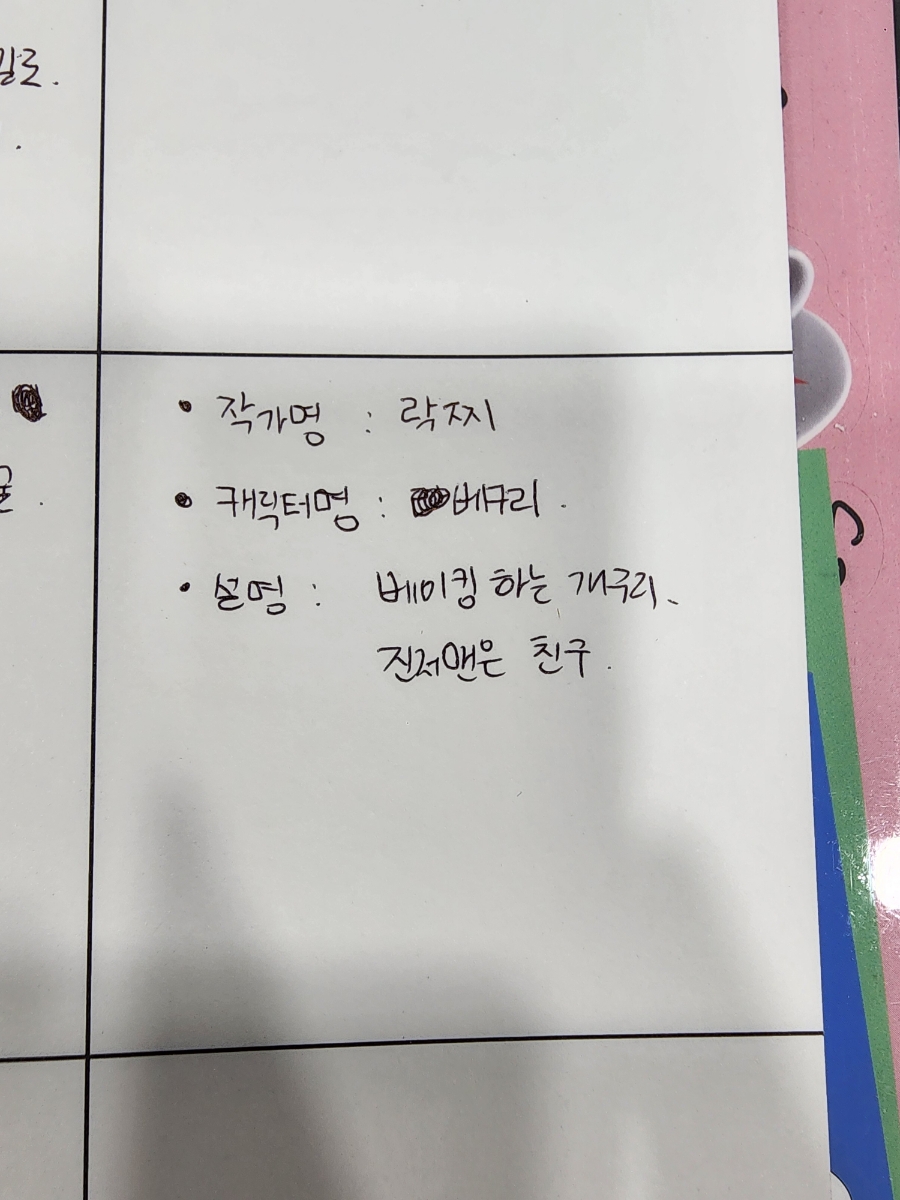 길로.
• 작가명 : 락찌
• 캐릭터명 : 베구리.
• 설명 : 베이킹 하는 개구리.
진저맨은 친구.